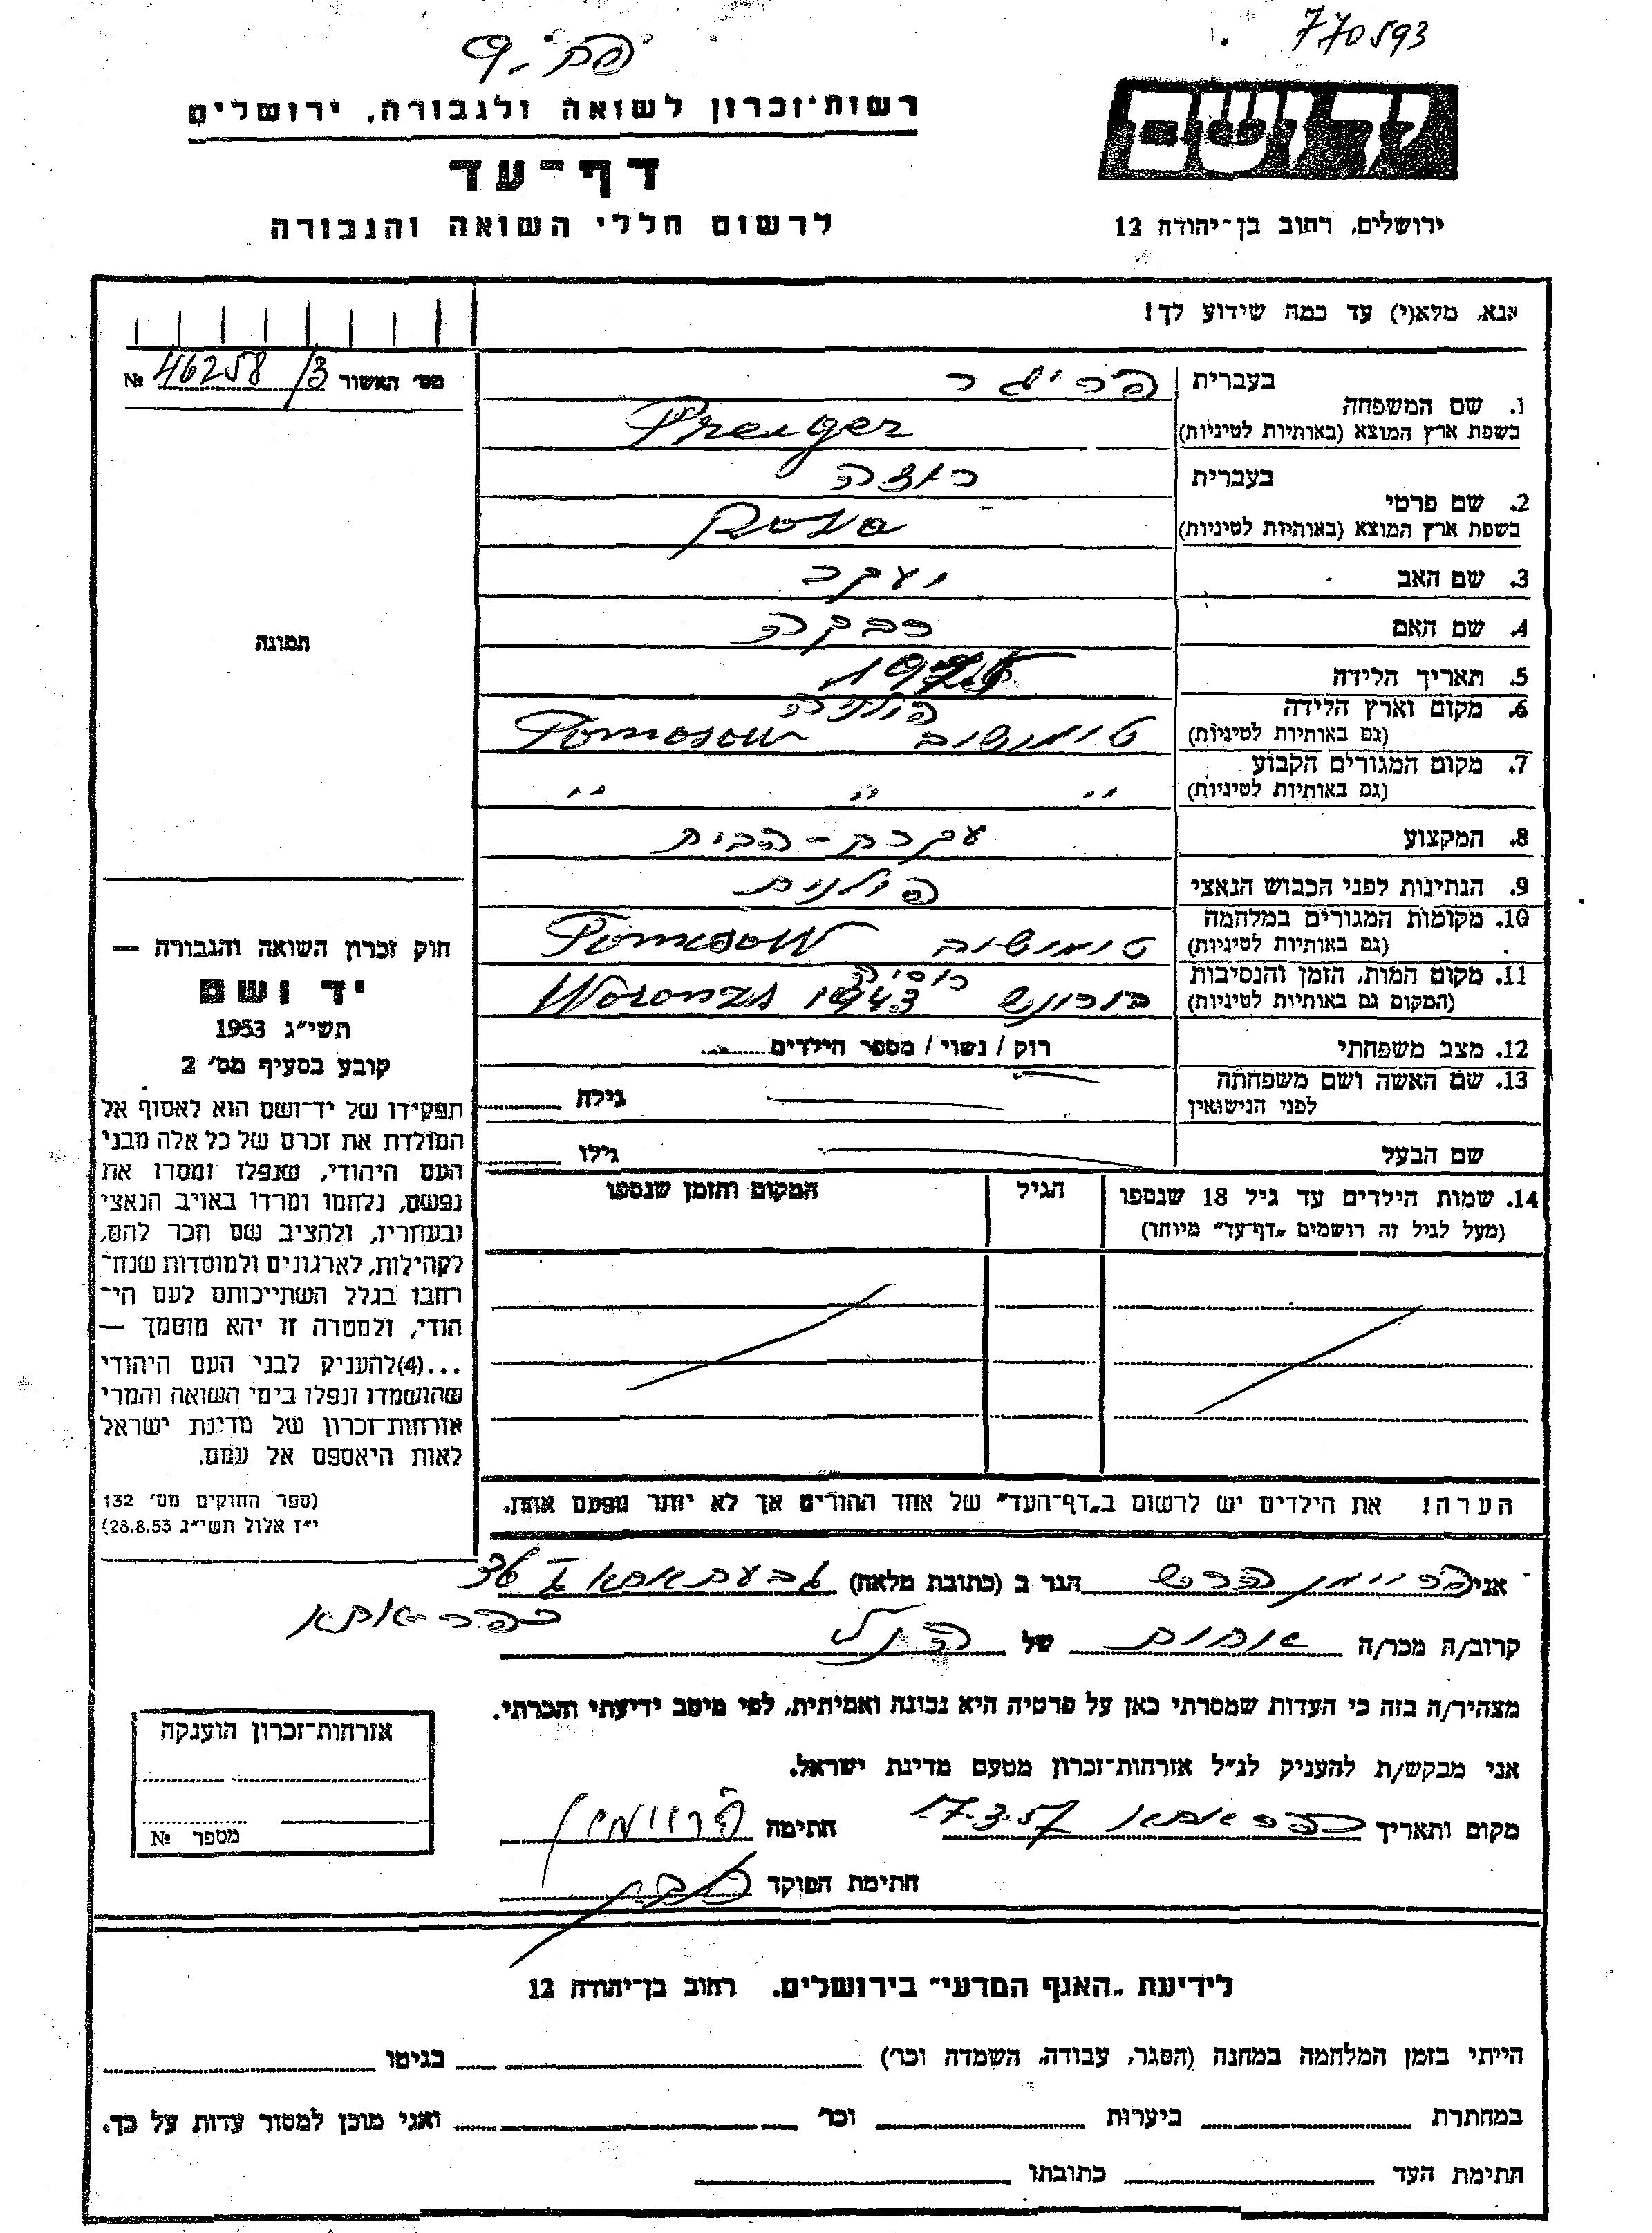 770593
רשות־זכרון לשואה ולגבורה, ירושלים
דף־עד
לרשום חללי השואה והגבורה
ידושם
ירושלים, רחוב בן־יהודה 12
אנא, מלא(י) עד כמה שידוע לך!
מס׳ האשור 46258/3 №
1. שם המשפחה
בעברית פרייגר
בשפת ארץ המוצא (באותיות לטיניות) Preuger
2. שם פרטי
בעברית ראזה
בשפת ארץ המוצא (באותיות לטיניות) Rosa
3. שם האב יעקב
4. שם האם רבקה
5. תאריך הלידה
6. מקום וארץ הלידה פולניה
(גם באותיות לטיניות) טומשוב Tomosow
7. מקום המגורים הקבוע
(גם באותיות לטיניות) " " "
8. המקצוע עקרת-הבית
9. הנתינות לפני הכבוש הנאצי פולנית
10. מקומות המגורים במלחמה
(גם באותיות לטיניות) טומשוב Tomosow
11. מקום המות, הזמן והנסיבות רוסיה
(המקום גם באותיות לטיניות) וורונש 1943 Woronzs
12. מצב משפחתי רוק / נשוי / מספר הילדים
13. שם האשה ושם משפחתה
לפני הנישואין גילה
שם הבעל גילו
14. שמות הילדים עד גיל 18 שנספו הגיל המקום והזמן שנספו
(מעל לגיל זה רושמים „דף־עד" מיוחד)
הערה! את הילדים יש לרשום ב„דף־העד" של אחד ההורים אך לא יותר מפעם אחת.
תמונה
חוק זכרון השואה והגבורה —
יד ושם
תשי״ג 1953
קובע בסעיף מס׳ 2
תפקידו של יד־ושם הוא לאסוף אל
המולדת את זכרם של כל אלה מבני
העם היהודי, שנפלו ומסרו את
נפשם, נלחמו ומרדו באויב הנאצי
ובעוזריו, ולהציב שם וזכר להם,
לקהילות, לארגונים ולמוסדות שנח־
רחבו בגלל השתייכותם לעם הי־
הודי, ולמטרה זו יהא מוסמך —
...(4)להעניק לבני העם היהודי
שהושמדו ונפלו בימי השואה והמרי
אזרחות־זכרון של מדינת ישראל
לאות היאספם אל עמם.
(ספר החוקים מס׳ 132
י״ז אלול תשי״ג 28.8.53)
אני פריימן הרש הגר ב (כתובת מלאה) גבעת אתא
כפר-אתא
קרוב/ה מכר/ה אחות של הנ״ל
מצהיר/ה בזה כי העדות שמסרתי כאן על פרטיה היא נכונה ואמיתית, לפי מיטב ידיעתי והכרתי.
אני מבקש/ת להעניק לנ״ל אזרחות־זכרון מטעם מדינת ישראל.
מקום ותאריך כפר אתא 17.3.57 חתימה פריימן
חתימת הפוקד
אזרחות־זכרון הוענקה
מספר №
לידיעת „האגף המדעי" בירושלים, רחוב בן־יהודה 12
הייתי בזמן המלחמה במחנה (הסגר, עבודה, השמדה וכר׳) בגיטו
במחתרת ביערות וכר׳ ואני מוכן למסור עדות על כך.
חתימת העד כתובתו